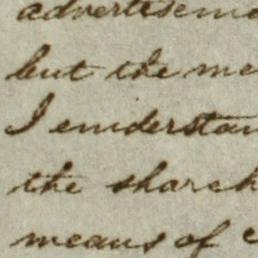 advertiseme
but the me
I emderstan
the shareh
means of e